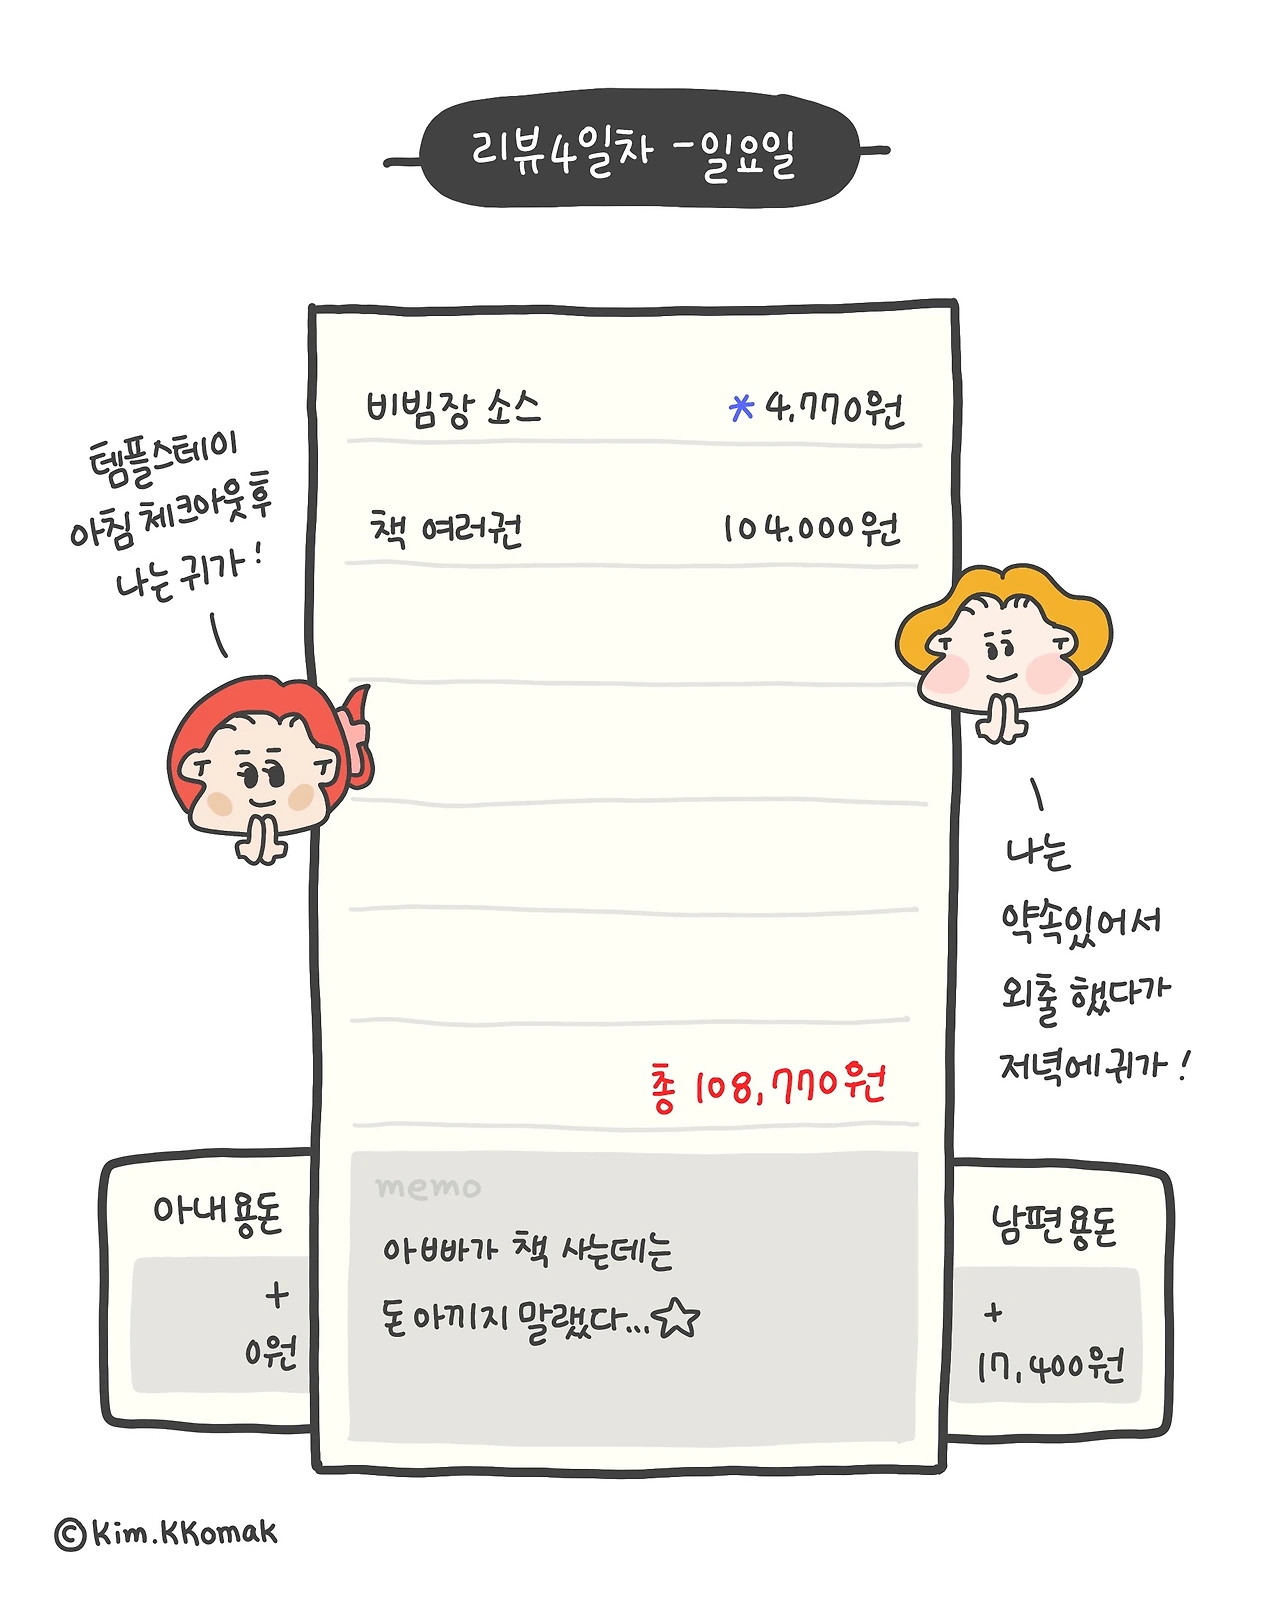 리뷰4일차 -일요일
비빔장 소스 *4.770원
책 여러권 104.000원
템플스테이
아침 체크아웃후
나는 귀가!
나는
약속있어서
외출 했다가
저녁에귀가!
총 108,770원
memo
아빠가 책 사는데는
돈아끼지 말랬다...☆
아내용돈
+
0원
남편용돈
+
17,400원
©Kim.KKomak